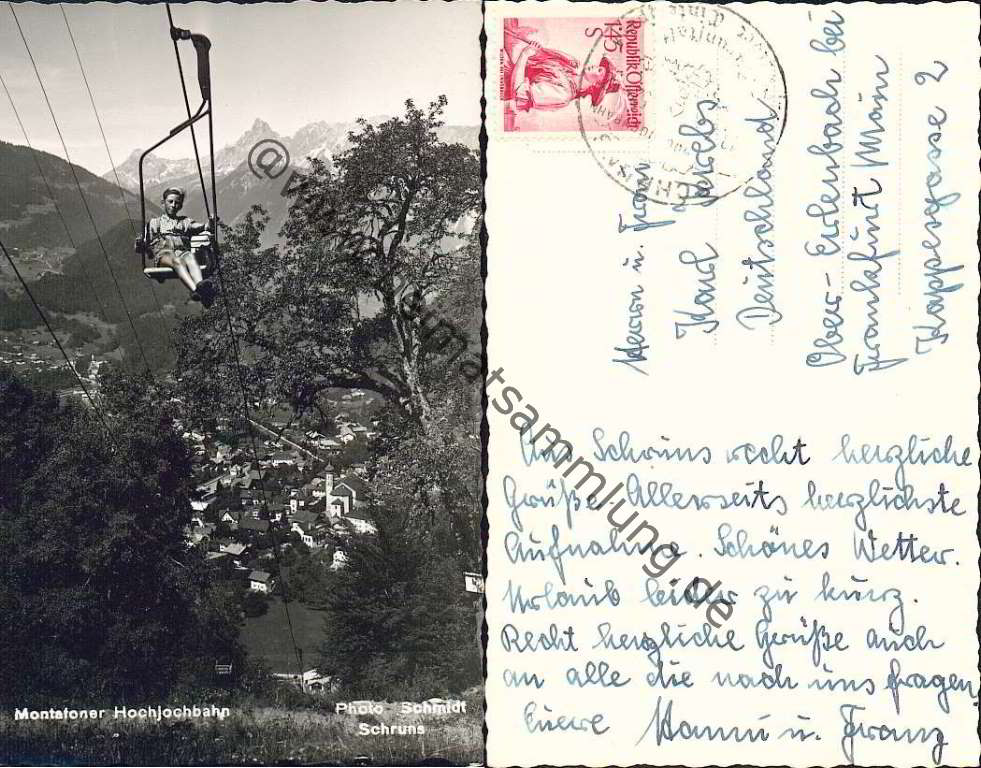 Montafoner Hochjochbahn
Photo Schmidt
Schruns
Republik Österreich
1'45
S
Herrn u. Frau
Karl
Deutschland
Ober-Erlenbach bei
Frankfurt Main
Kappesgasse 2
Aus Schruns recht herzliche
Grüße. Allerseits herzlichste
Aufnahme. Schönes Wetter.
Urlaub leider zu kurz.
Recht herzliche Grüße auch
an alle die nach uns fragen.
Euere Hanni u. Franz
heimatsammlung.de